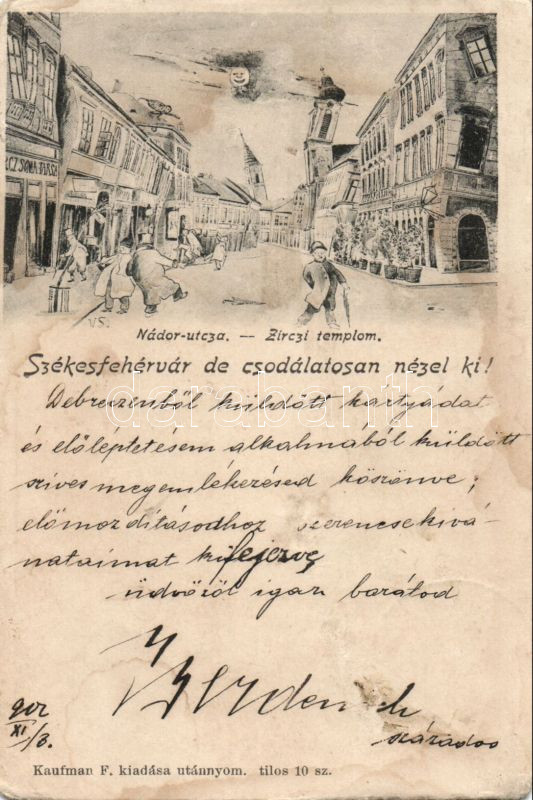 CZ SOMA
V.S.
Nádor-utcza. — Zirczi templom.
Székesfehérvár de csodálatosan nézel ki!
darabanth
Debreczenből küldött kartyádat
és előleptetesem alkalmából küldött
szives megemlékezésed köszönve;
előmozdításodhoz szerencsekivá-
nataimat kifejezve
üdvözöl igaz barátod
százados
902
XI
/3.
Kaufman F. kiadása utánnyom. tilos 10 sz.